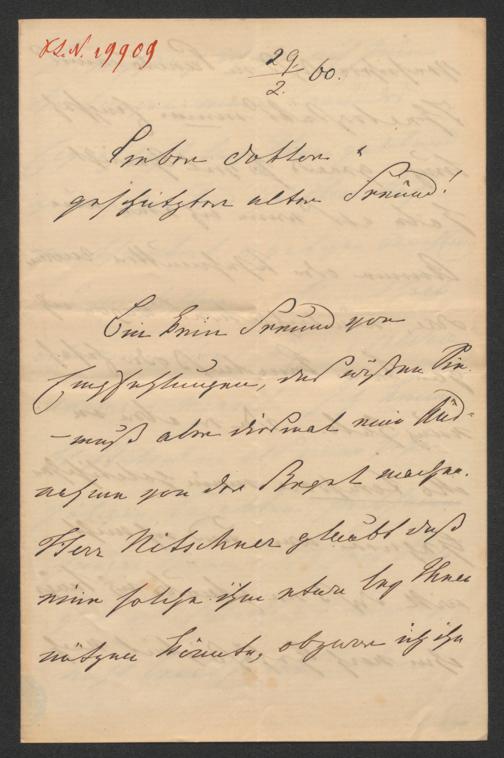 H.I.N. 19909
29/2. 60.
Lieber Doktor u
geschätzter alter Freund!
Bin kein Freund von
Empfehlungen, das wißen Sie,
– muß aber diesmal eine Aus-
nahme von der Regel machen.
Herr Nitschner glaubt daß
eine solche ihm etwas bey Ihnen
nützen könnte, obzwar ich ihn